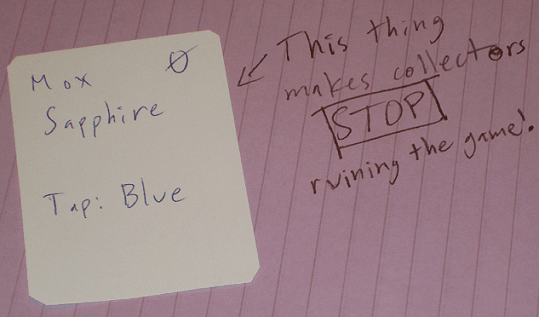 Mox 0
Sapphire
Tap: Blue
This thing
makes collectors
STOP
ruining the game!